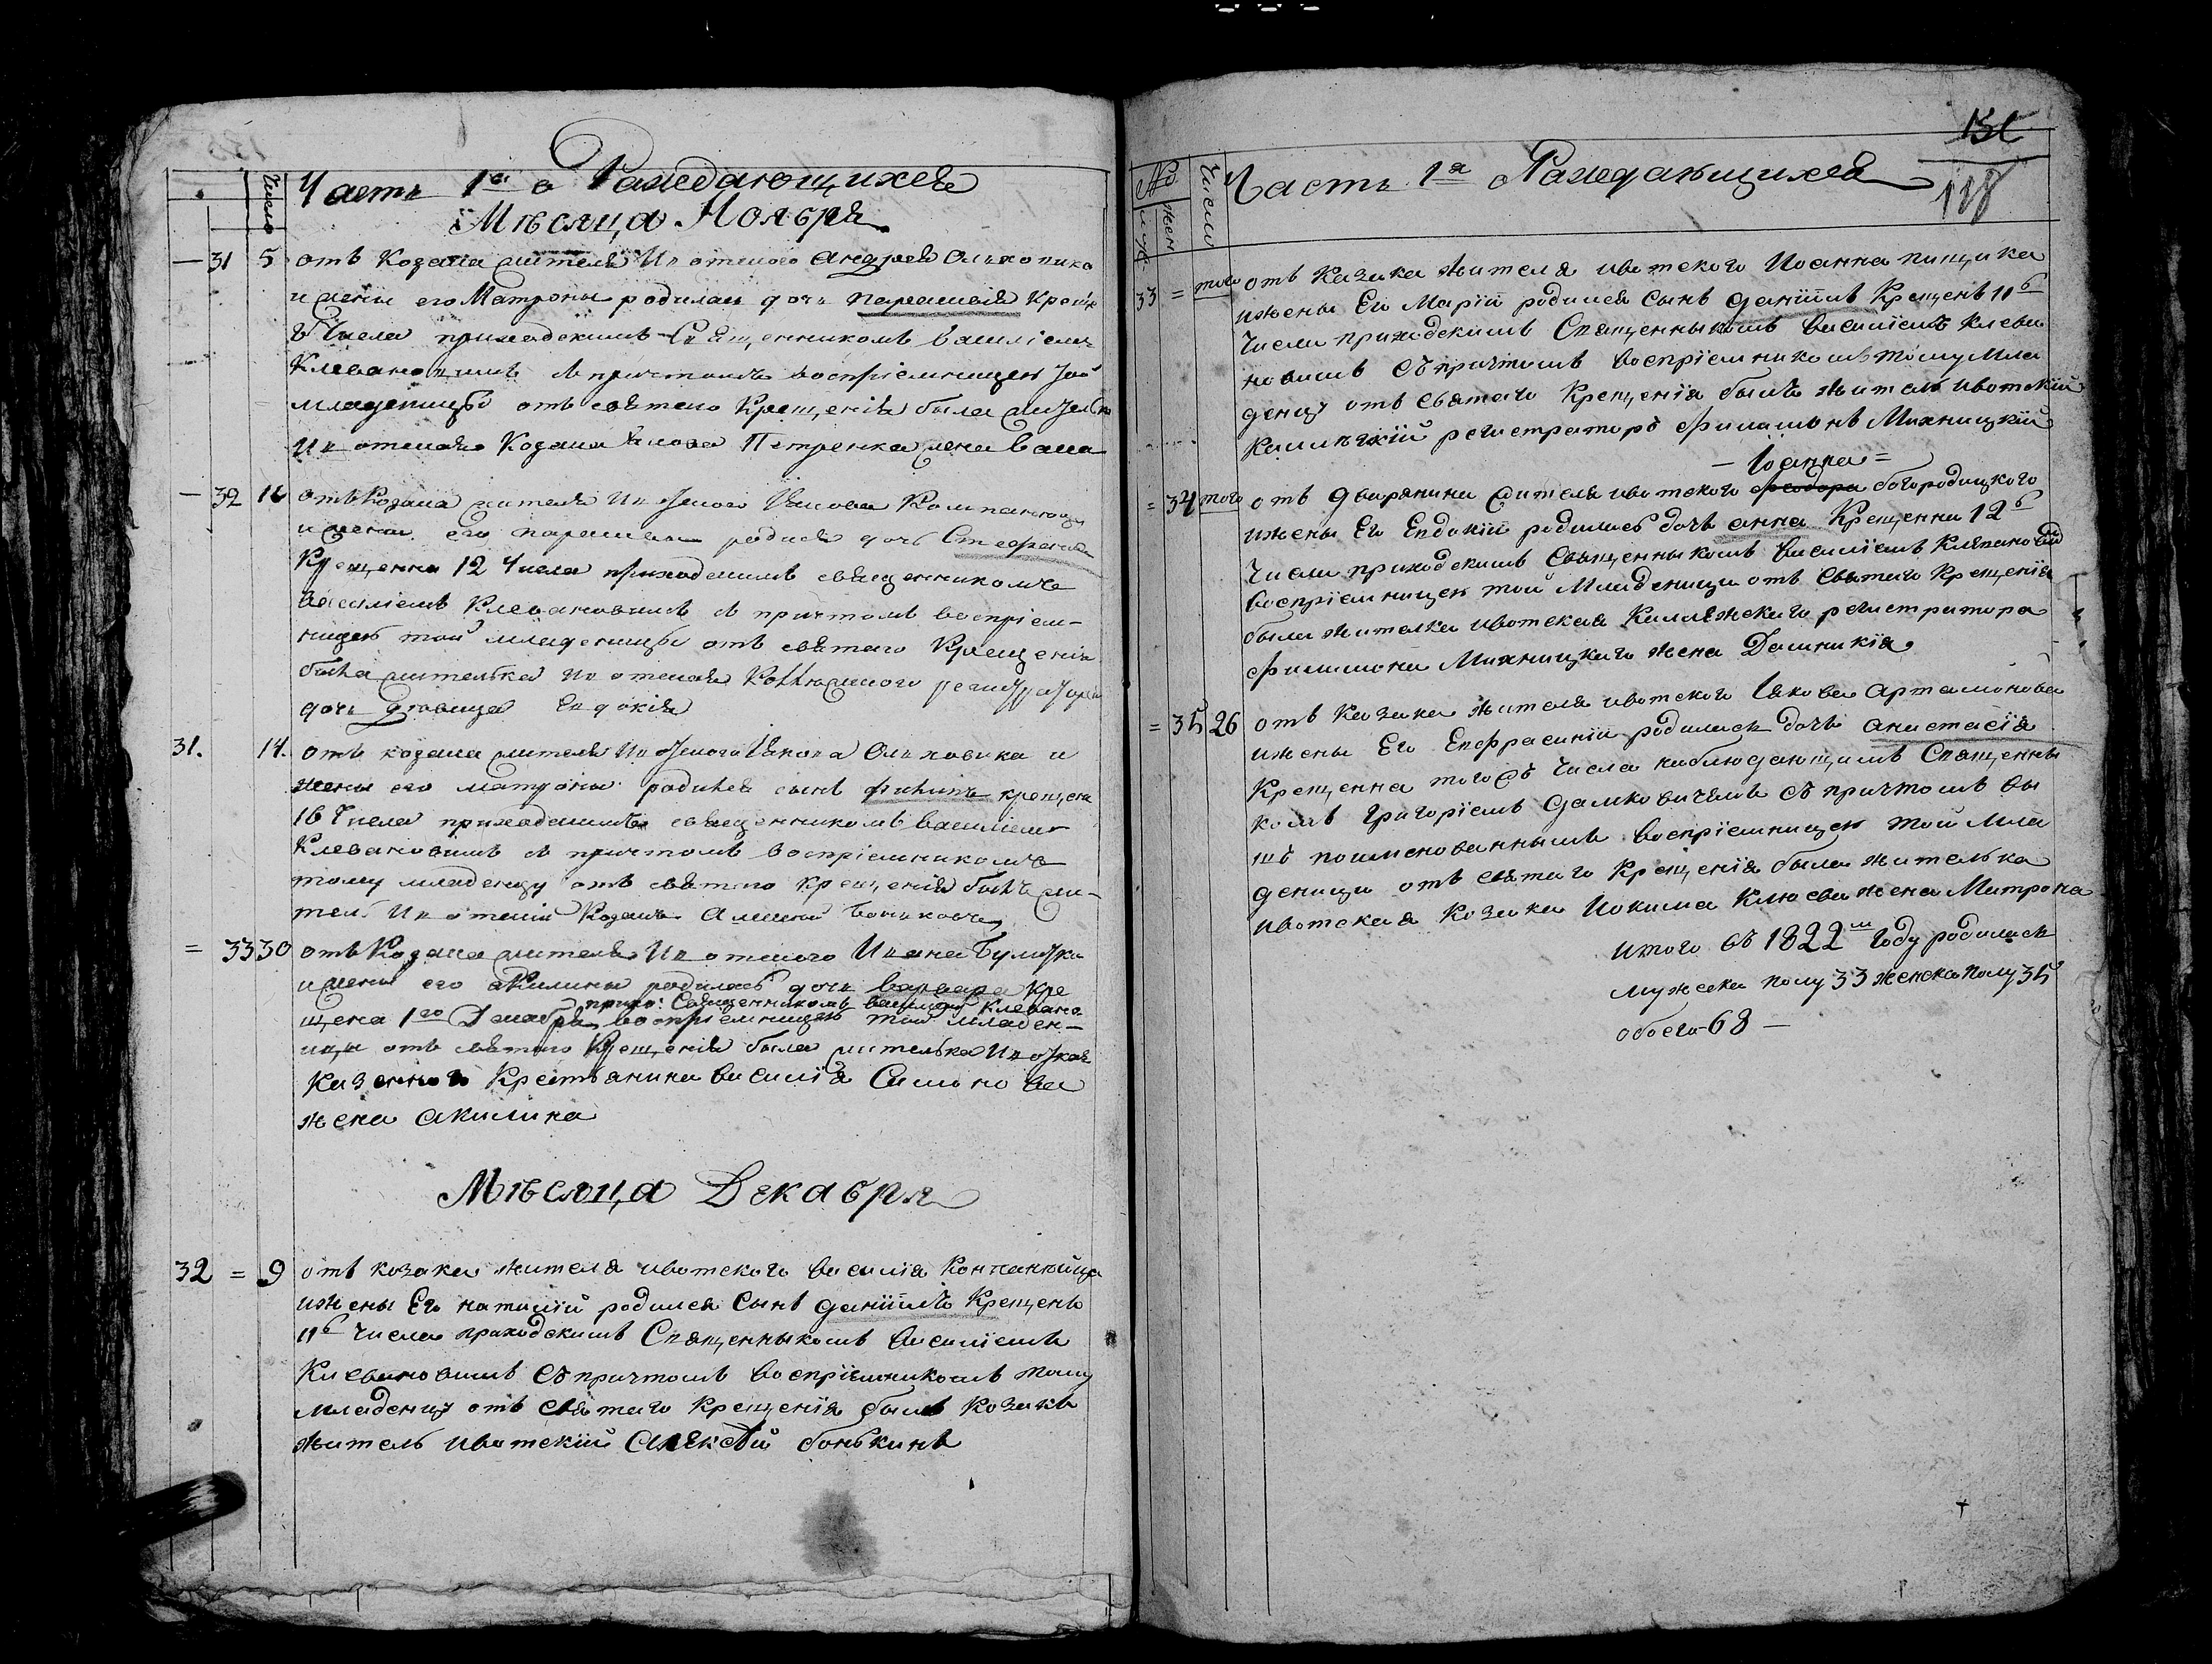 Число
Часть 1я о Раждающихся
Мѣсяца Ноября
— 31 5 отъ Козака жителя Ивотского андрея Ольховика
и жены его Матроны родилась дочь парасковія Крещена
8 Числа приходскимъ Священникомъ василіемъ
Клевановимъ съ причтомъ воспріемницею той
младеницы отъ святаго Крещенія была жителька
Ивотская Козака Якова Петренка жена
— 32 10 отъ Козака жителя Ивотского Якова Компанейца
и жены его параскевы родися дочь Стефанида
Крещенна 12 Числа приходскимъ священникомъ
василіемъ Клевановимъ съ причтомъ воспріем-
ницею той младеницы отъ святаго Крещенія
была жителька Ивотская Коллежского регистратора
дочь дѣвица Евдокія
31. 14. отъ козака жителя Ивотского Якова Ольховика и
жены его матроны родился сынъ филипъ крещенъ
16 Числа приходскимъ священникомъ василіемъ
Клевановимъ съ причтомъ воспріемникомъ
тому младенцу отъ святаго крещенія былъ жи-
тель Ивотскій Козакъ Алексей
= 33 30 отъ Козака жителя Ивотского Ивана
и жены его Акилины родилась дочь варвара Кре
прихо: Священникомъ василіемъ Клевано
щена 1го Декабря воспріемницею той младен-
ицы отъ святаго Крещенія была жителька Ивотская
Казенного Крестьянина василія Симонова
жена акилина
Мѣсяца Декабря
32 = 9 отъ козака жителя ивотского василія Компанѣйца
ижены Его наталіи родился Сынъ даніилъ Крещенъ
11б Числа приходскимъ Священныкомъ василіемъ
Клевановимъ Съ причтомъ воспріемникомъ тому
младенцу отъ святаго Крещенія былъ Козакъ
житель ивотскій Алексѣй бонькинъ
131
118
№ Число
муж жен
Часть 1я Раждающихся
33 = того отъ Казака жителя ивотского Иоанна пищика
ижены Его Маріи родился Сынъ даніилъ Крещенъ 11б
Числа приходскимъ Священныкомъ василіемъ Клева
новимъ Съ причтомъ воспріемникомъ тому Мла
денцу отъ Святаго Крещенія былъ житель ивотскій
Каллѣжскій регистраторъ Филимонъ Махницкій
— Іоанна =
= 34 того отъ дварянина жителя ивотского феодора богородицкого
ижены Его Евдокіи родилась дочь анна Крещенна 12б
Числа приходскимъ Священныкомъ василіемъ Клевановим
воспріемницею той Младеници отъ Святаго Крещенія
была жителка ивотская Каллежского регистратора
Филимона Махницкого жена Домникія
= 35 26 отъ Казака жителя ивотского Іакова Артамонова
ижены Его Евфрасиніи родилась дочь анастасія
Крещенна того жъ Числа наблюдающимъ Священны
комъ Григоріемъ Самковичемъ съ причтомъ вы
шъ поименованнымъ воспріемницею той Мла
деници отъ святаго Крещенія была жителька
ивотская Козака Иокима Клюева жена Матрона
итого въ 1822м Году родилась
мужеска полу 33 женска полу 35
обоего—68 —